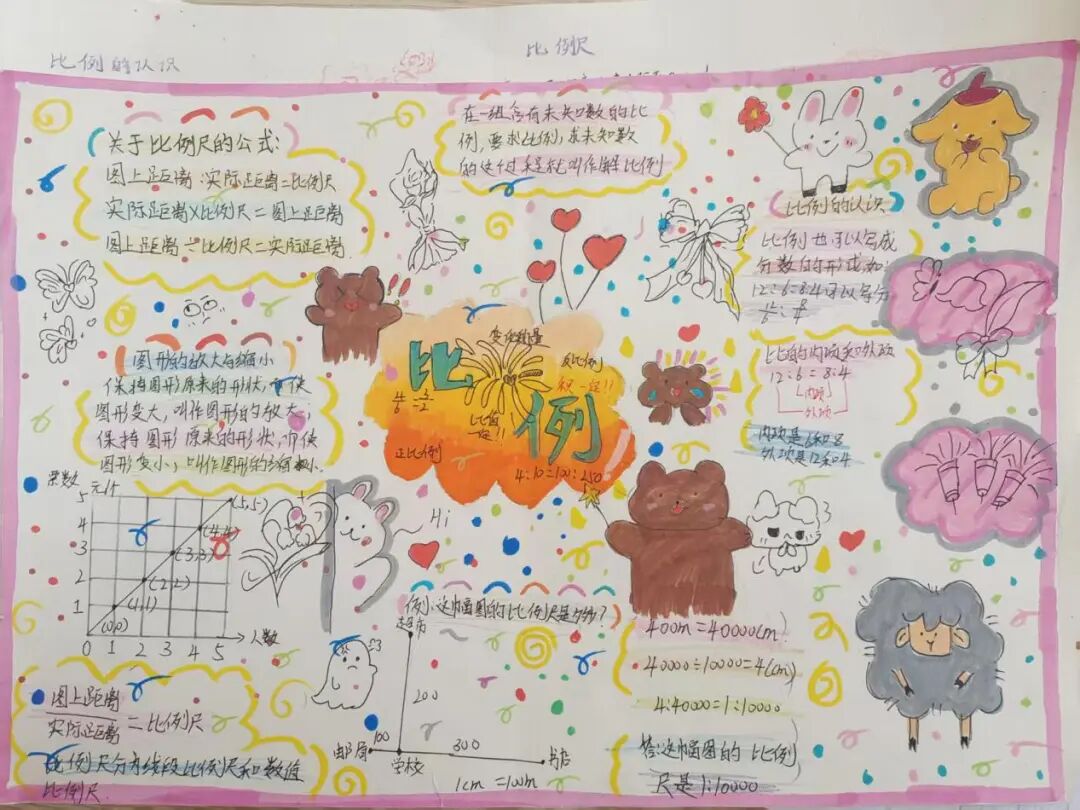 比例的认识
比例尺
关于比例尺的公式:
图上距离:实际距离=比例尺
实际距离×比例尺=图上距离
图上距离÷比例尺=实际距离
在一组含有未知数的比
例,要求比例,求未知数
的这个过程就叫作解比例
比例的认识
比例也可以写成
分数的形式如:
12:6=8:4可以写分
比的内项和外项
12:6=8:4
内项
外项
内项是6和8
外项是12和4
图形的放大与缩小
保持图形原来的形状,而使
图形变大,叫作图形的放大,
保持图形原来的形状,而使
图形变小,叫作图形的缩小.
变化的量
比例
反比例
积一定!!
比值
一定!!
正比例
4:10=100:250
Hi
票数
元/个
5
4
3
2
1
0 1 2 3 4 5
人数
(0,0)
(1,1)
(2,2)
(3,3)
(4,4)
(5,5)
图上距离
实际距离
=比例尺
比例尺分为线段比例尺和数值
比例尺.
例:这幅图的比例尺是多少?
超市
200
邮局
100
学校
300
书店
1cm=100m
400m=40000(cm)
40000÷10000=4(cm)
4:40000=1:10000
答:这幅图的比例
尺是1:10000